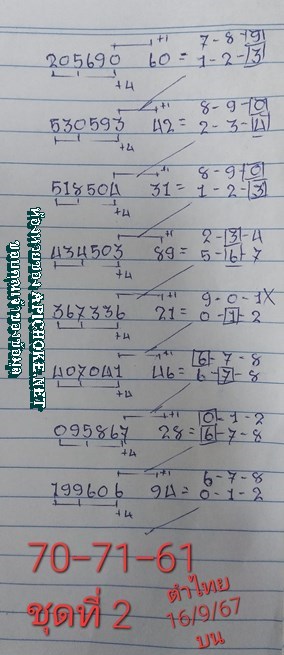 +1 7-8-9
205690 60 = 1-2-3
+4
+1 8-9-0
530593 42 = 2-3-4
+4
+1 8-9-0
518504 31 = 1-2-3
+4
+1 2-3-4
434503 89 = 5-6-7
+4
+1 9-0-1X
367336 21 = 0-1-2
+4
+1 6-7-8
407041 46 = 6-7-8
+4
+1 0-1-2
095867 28 = 6-7-8
+4
+1 6-7-8
799606 94 = 0-1-2
+4
70-71-61
ชุดที่ 2
ตำไทย
16/9/67
บน
APICHOKE.NET